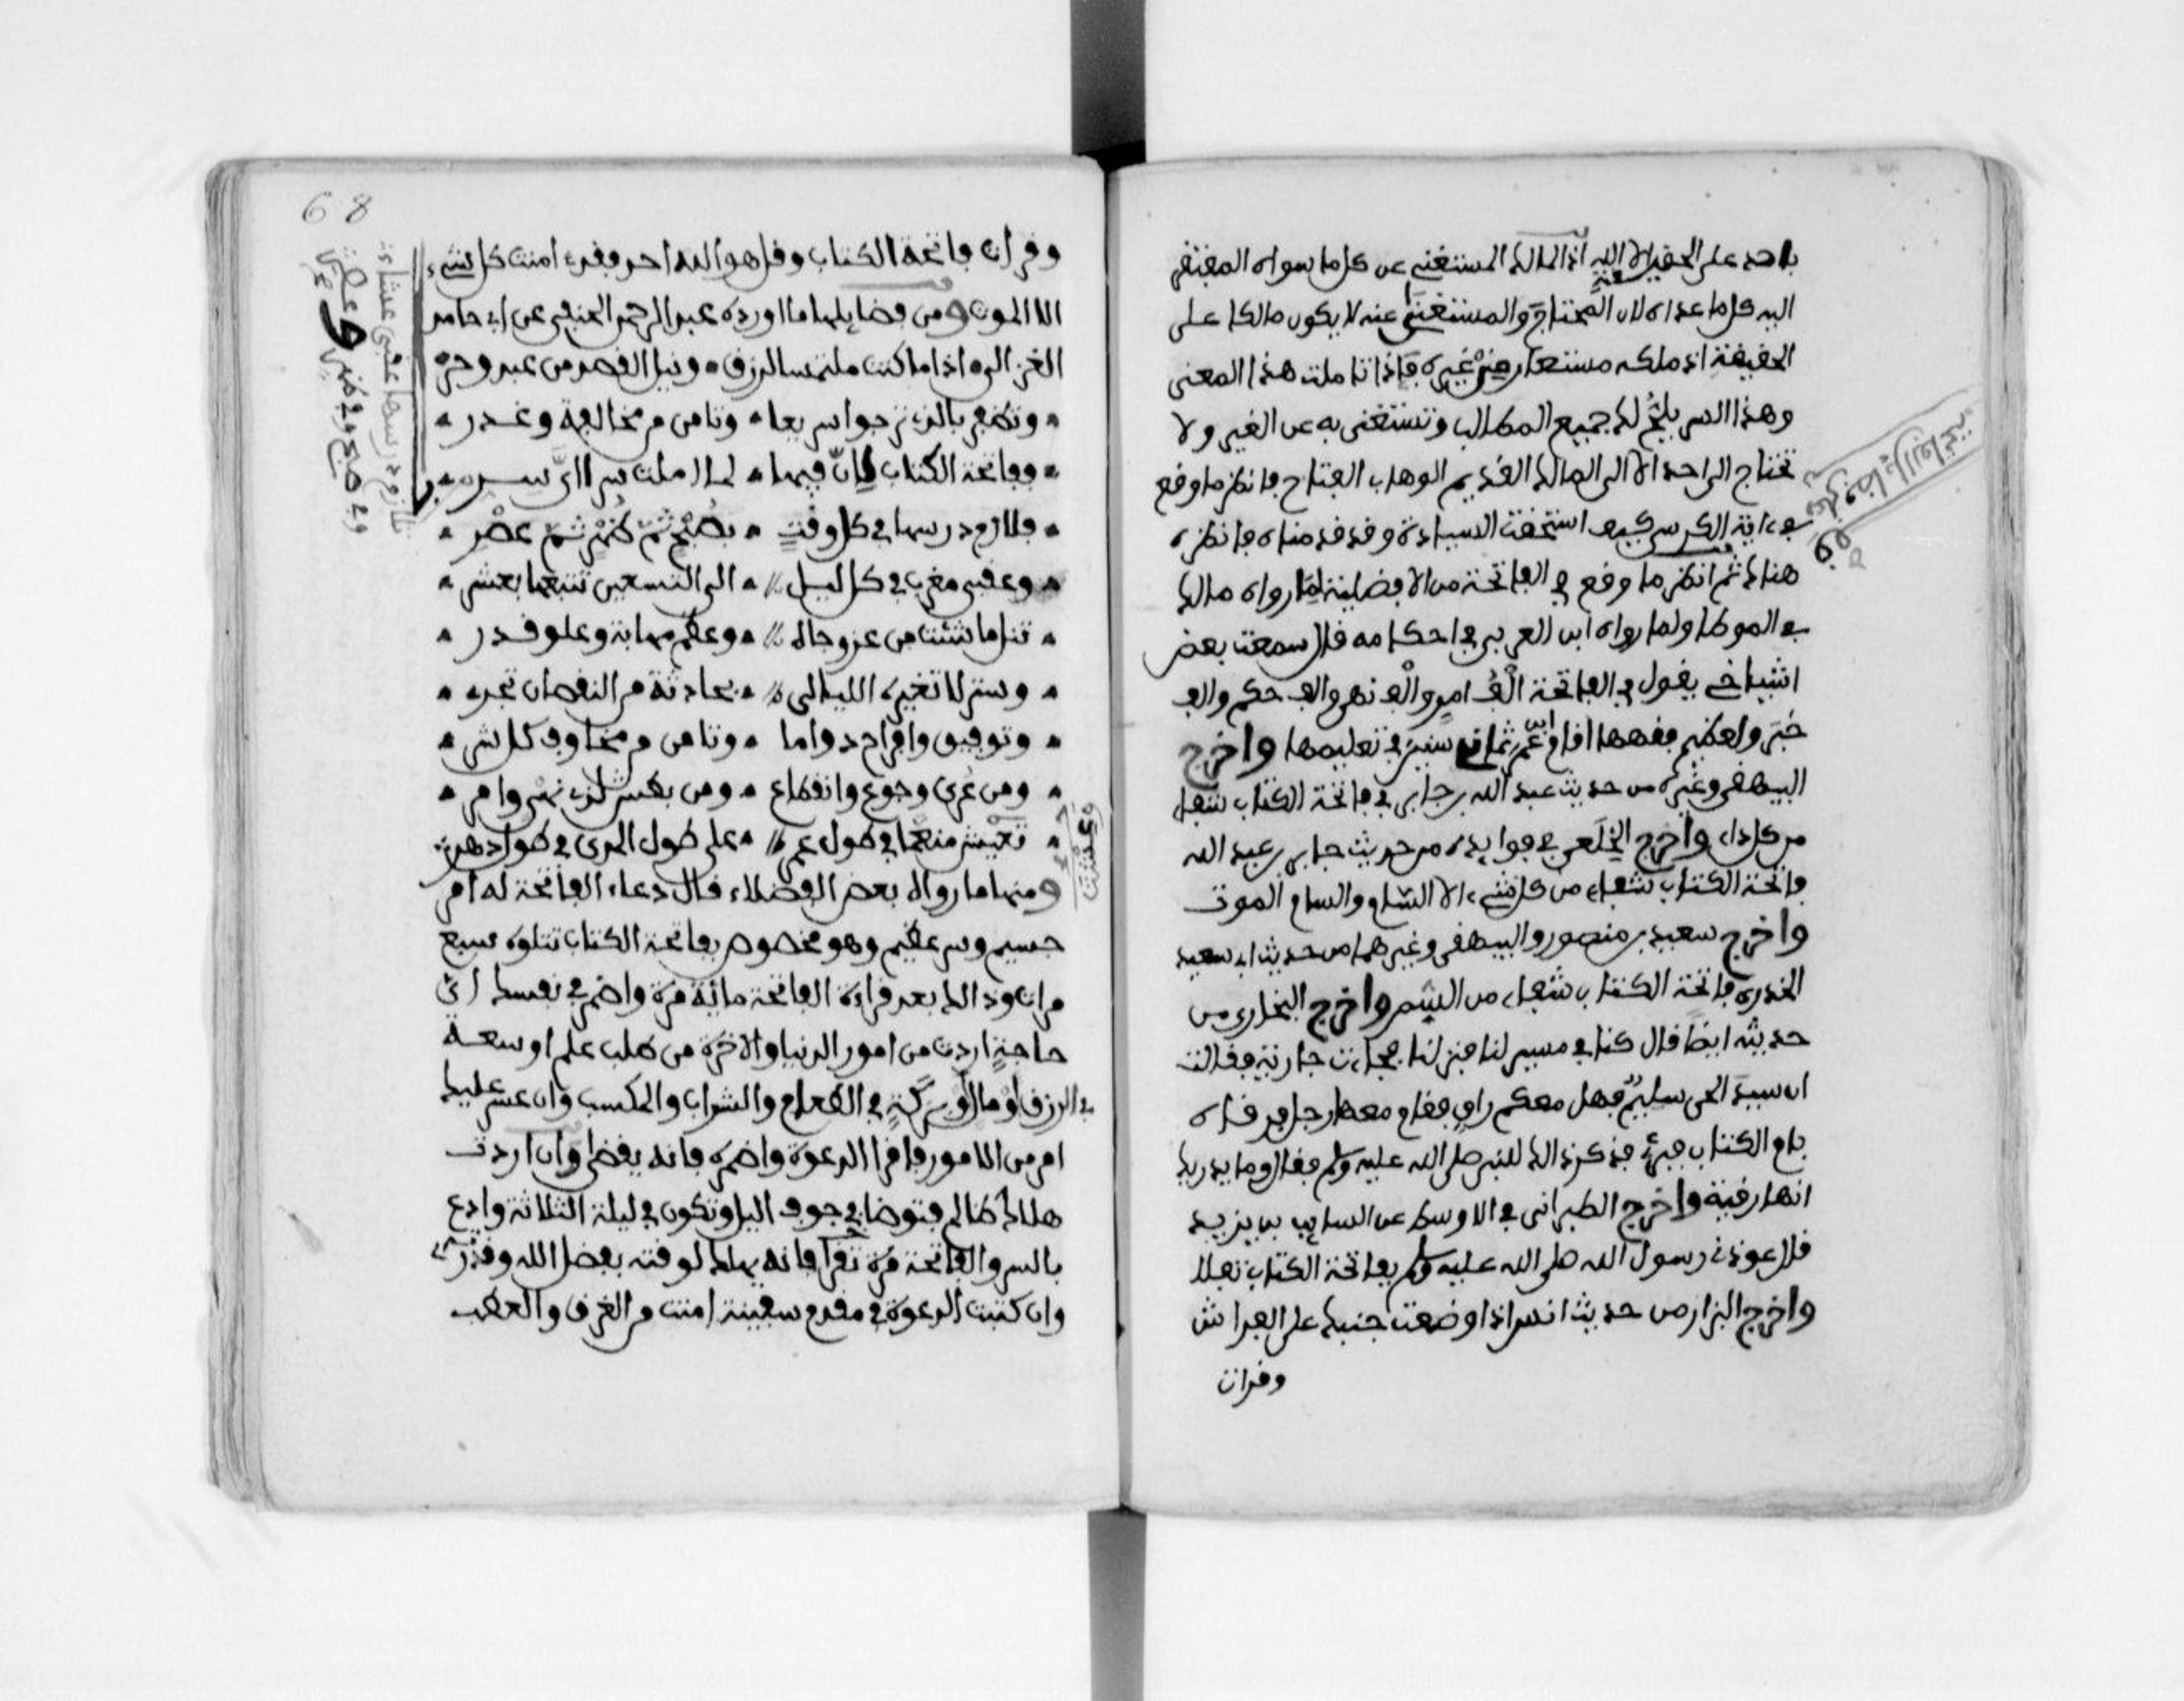 باحد على الحقيقة الا الله اذ المالك المستغنى عن كل ما سواه المفتقر
اليه كل ما عداه لان المحتاج والمستغنى عنه لا يكون مالكا على
الحقيقة اذ ملكه مستعار من غيره فاذا تاملت هذا المعنى
وهذا السر يلح لك جميع المطالب وتستغنى به عن الغير ولا
تحتاج الى احد الا الى المالك القديم الوهاب الفتاح فانظر ما وقع
في ءاية الكرسي كيف استحقت السيادة وقد قدمناه فانظره
هناك ثم انظر ما وقع في الفاتحة من الافضلية لما رواه مالك
في الموطا ولما رواه ابن العربي في احكامه قال سمعت بعض
اشياخي يقول في الفاتحة الف امر والف نهي والف حكم والف
خبر ولعظيم فقهها اقام ابن عمر ثماني سنين في تعليمها واخرج
البيهقي وغيره من حديث عبد الله بن جابر في فاتحة الكتاب شفاء
من كل داء واخرج الخلعي في فوايده من حديث جابر بن عبد الله
فاتحة الكتاب شفاء من كل شيء الا السام والسام الموت
واخرج سعيد بن منصور والبيهقي وغيرهما من حديث ابي سعيد
الخدري فاتحة الكتاب شفاء من السم واخرج البخاري من
حديثه ايضا قال كنا في مسير لنا فنزلنا فجاءت جارية فقالت
ان سيد الحي سليم فهل معكم راق فقام معها رجل فرقاه
بام الكتاب فبرئ فذكر ذالك للنبي صلى الله عليه وسلم فقال وما يدريك
انها رقية واخرج الطبراني في الاوسط عن السايب بن يزيد
قال عوذني رسول الله صلى الله عليه وسلم بفاتحة الكتاب تفلا
واخرج البزار من حديث انس اذا وضعت جنبك على الفراش
وقرات
وفضايل الفاتحة
68
وقرات فاتحة الكتاب وقل هو الله احد فقد امنت كل شيء
الا الموت ومن فضايلها ما اورده عبد الرحمن الحنفي عن ابي حامد
الغزالي اذا ما كنت ملتمسا لرزق ونيل القصد من عبد وحر
وتظفر بالذي ترجوا سريعا وتامن من مخالفة وغدر
ففاتحة الكتاب فان فيها لما املت سرا اي سر
فلازم درسها في كل وقت بصبح ثم ظهر ثم عصر
وعقبى مغرب في كل ليل الى التسعين تتبعها بعشر
تنل ما شئت من عز وجاه وعظم مهابة وعلو قدر
وستر لا تغيره الليالي بحادثة من النقصان تجري
وتوفيق وافراح دواما وتامن من مخاوف كل شر
ومن عري وجوع وانقطاع ومن بطش لذي نهي وامر
تعيش منعما في طول عمر على طول المدى في طول دهر
ومنها ما رواه بعض الفضلاء قال دعاء الفاتحة له امر
جسيم وسر عظيم وهو مخصوص بفاتحة الكتاب تتلوه سبع
مرات وذالك بعد قراءة الفاتحة مائة مرة واضمر في نفسك اي
حاجة اردت من امور الدنيا والاخرة من طلب علم او سعة
في الرزق او مال او بركة في الطعام والشراب والمكسب وان عسر عليك
امر من الامور فاقرا الدعوة واضمره فانه يقضى وان اردت
هلاك ظالم فتوضا في جوف اليل وتكون في ليلة الثلاثة وادع
بالسر والفاتحة مرة تقرا فانه يهلك لوقته بفضل الله وقدرته
وان كتبت الدعوة في مقدم سفينة امنت من الغرق والعطب
فلازم درسها عقبى عشاء
وفي صبح وفي ظهر وعصر